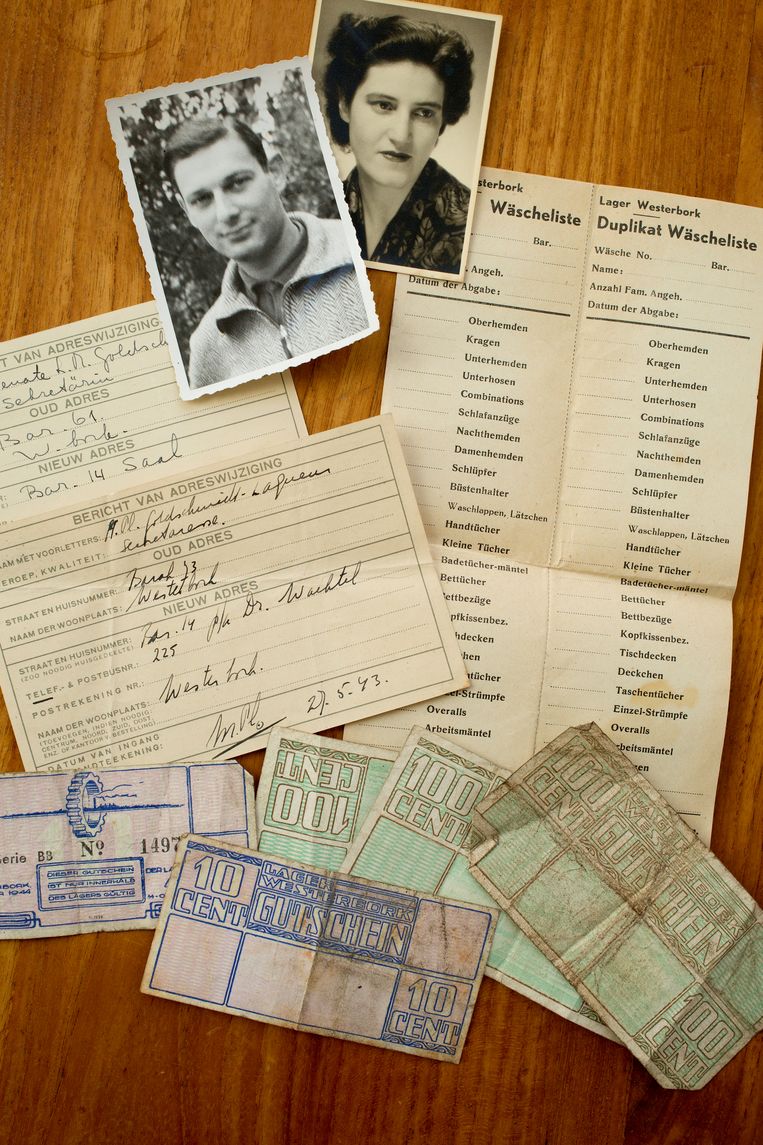 Westerbork
Wäscheliste
Bar.
Fam. Angeh.
Datum der Abgabe:
Oberhemden
Kragen
Unterhemden
Unterhosen
Combinations
Schlafanzüge
Nachthemden
Damenhemden
Schlüpfer
Büstenhalter
Waschlappen, Lätzchen
Handtücher
Kleine Tücher
Badetücher-mäntel
Bettücher
Bettbezüge
Kopfkissenbez.
Tischdecken
Deckchen
Taschentücher
Einzel-Strümpfe
Overalls
Arbeitsmäntel
Lager Westerbork
Duplikat Wäscheliste
Wäsche No. Bar.
Name:
Anzahl Fam. Angeh.
Datum der Abgabe:
Oberhemden
Kragen
Unterhemden
Unterhosen
Combinations
Schlafanzüge
Nachthemden
Damenhemden
Schlüpfer
Büstenhalter
Waschlappen, Lätzchen
Handtücher
Kleine Tücher
Badetücher-mäntel
Bettücher
Bettbezüge
Kopfkissenbez.
Tischdecken
Deckchen
Taschentücher
Einzel-Strümpfe
Overalls
Arbeitsmäntel
BERICHT VAN ADRESWIJZIGING
Renate L.A. Goldsch
Sekretärin
OUD ADRES
Bar. 61.
W.bork.
NIEUW ADRES
Bar. 14 Saal
BERICHT VAN ADRESWIJZIGING
NAAM MET VOORLETTERS: Goldschmidt-Laqueur
BEROEP, KWALITEIT: Secretaresse.
OUD ADRES
STRAAT EN HUISNUMMER: Barak 43
NAAM DER WOONPLAATS: Westerbork
NIEUW ADRES
STRAAT EN HUISNUMMER: Bar. 14 p/a Dr. Wachtel
(ZOO NOODIG HUISGEDEELTE) 225
TELEF.- & POSTBUSNR.:
POSTREKENING NR.:
NAAM DER WOONPLAATS: Westerbork.
(TOEVOEGEN, INDIEN NOODIG:
CENTRUM, NOORD, ZUID, OOST,
ENZ. OF KANTOOR V. BESTELLING)
DATUM VAN INGANG 27.5.43.
HANDTEEKENING:
Serie BB No 1497
DIESER GUTSCHEIN
IST NUR INNERHALB
DES LAGERS GÜLTIG
100
CENT
100
CENT
10
CENT
LAGER
WESTERBORK
GUTSCHEIN
10
CENT
100
CENT
LAGER
GUTSCHEIN
100
CENT